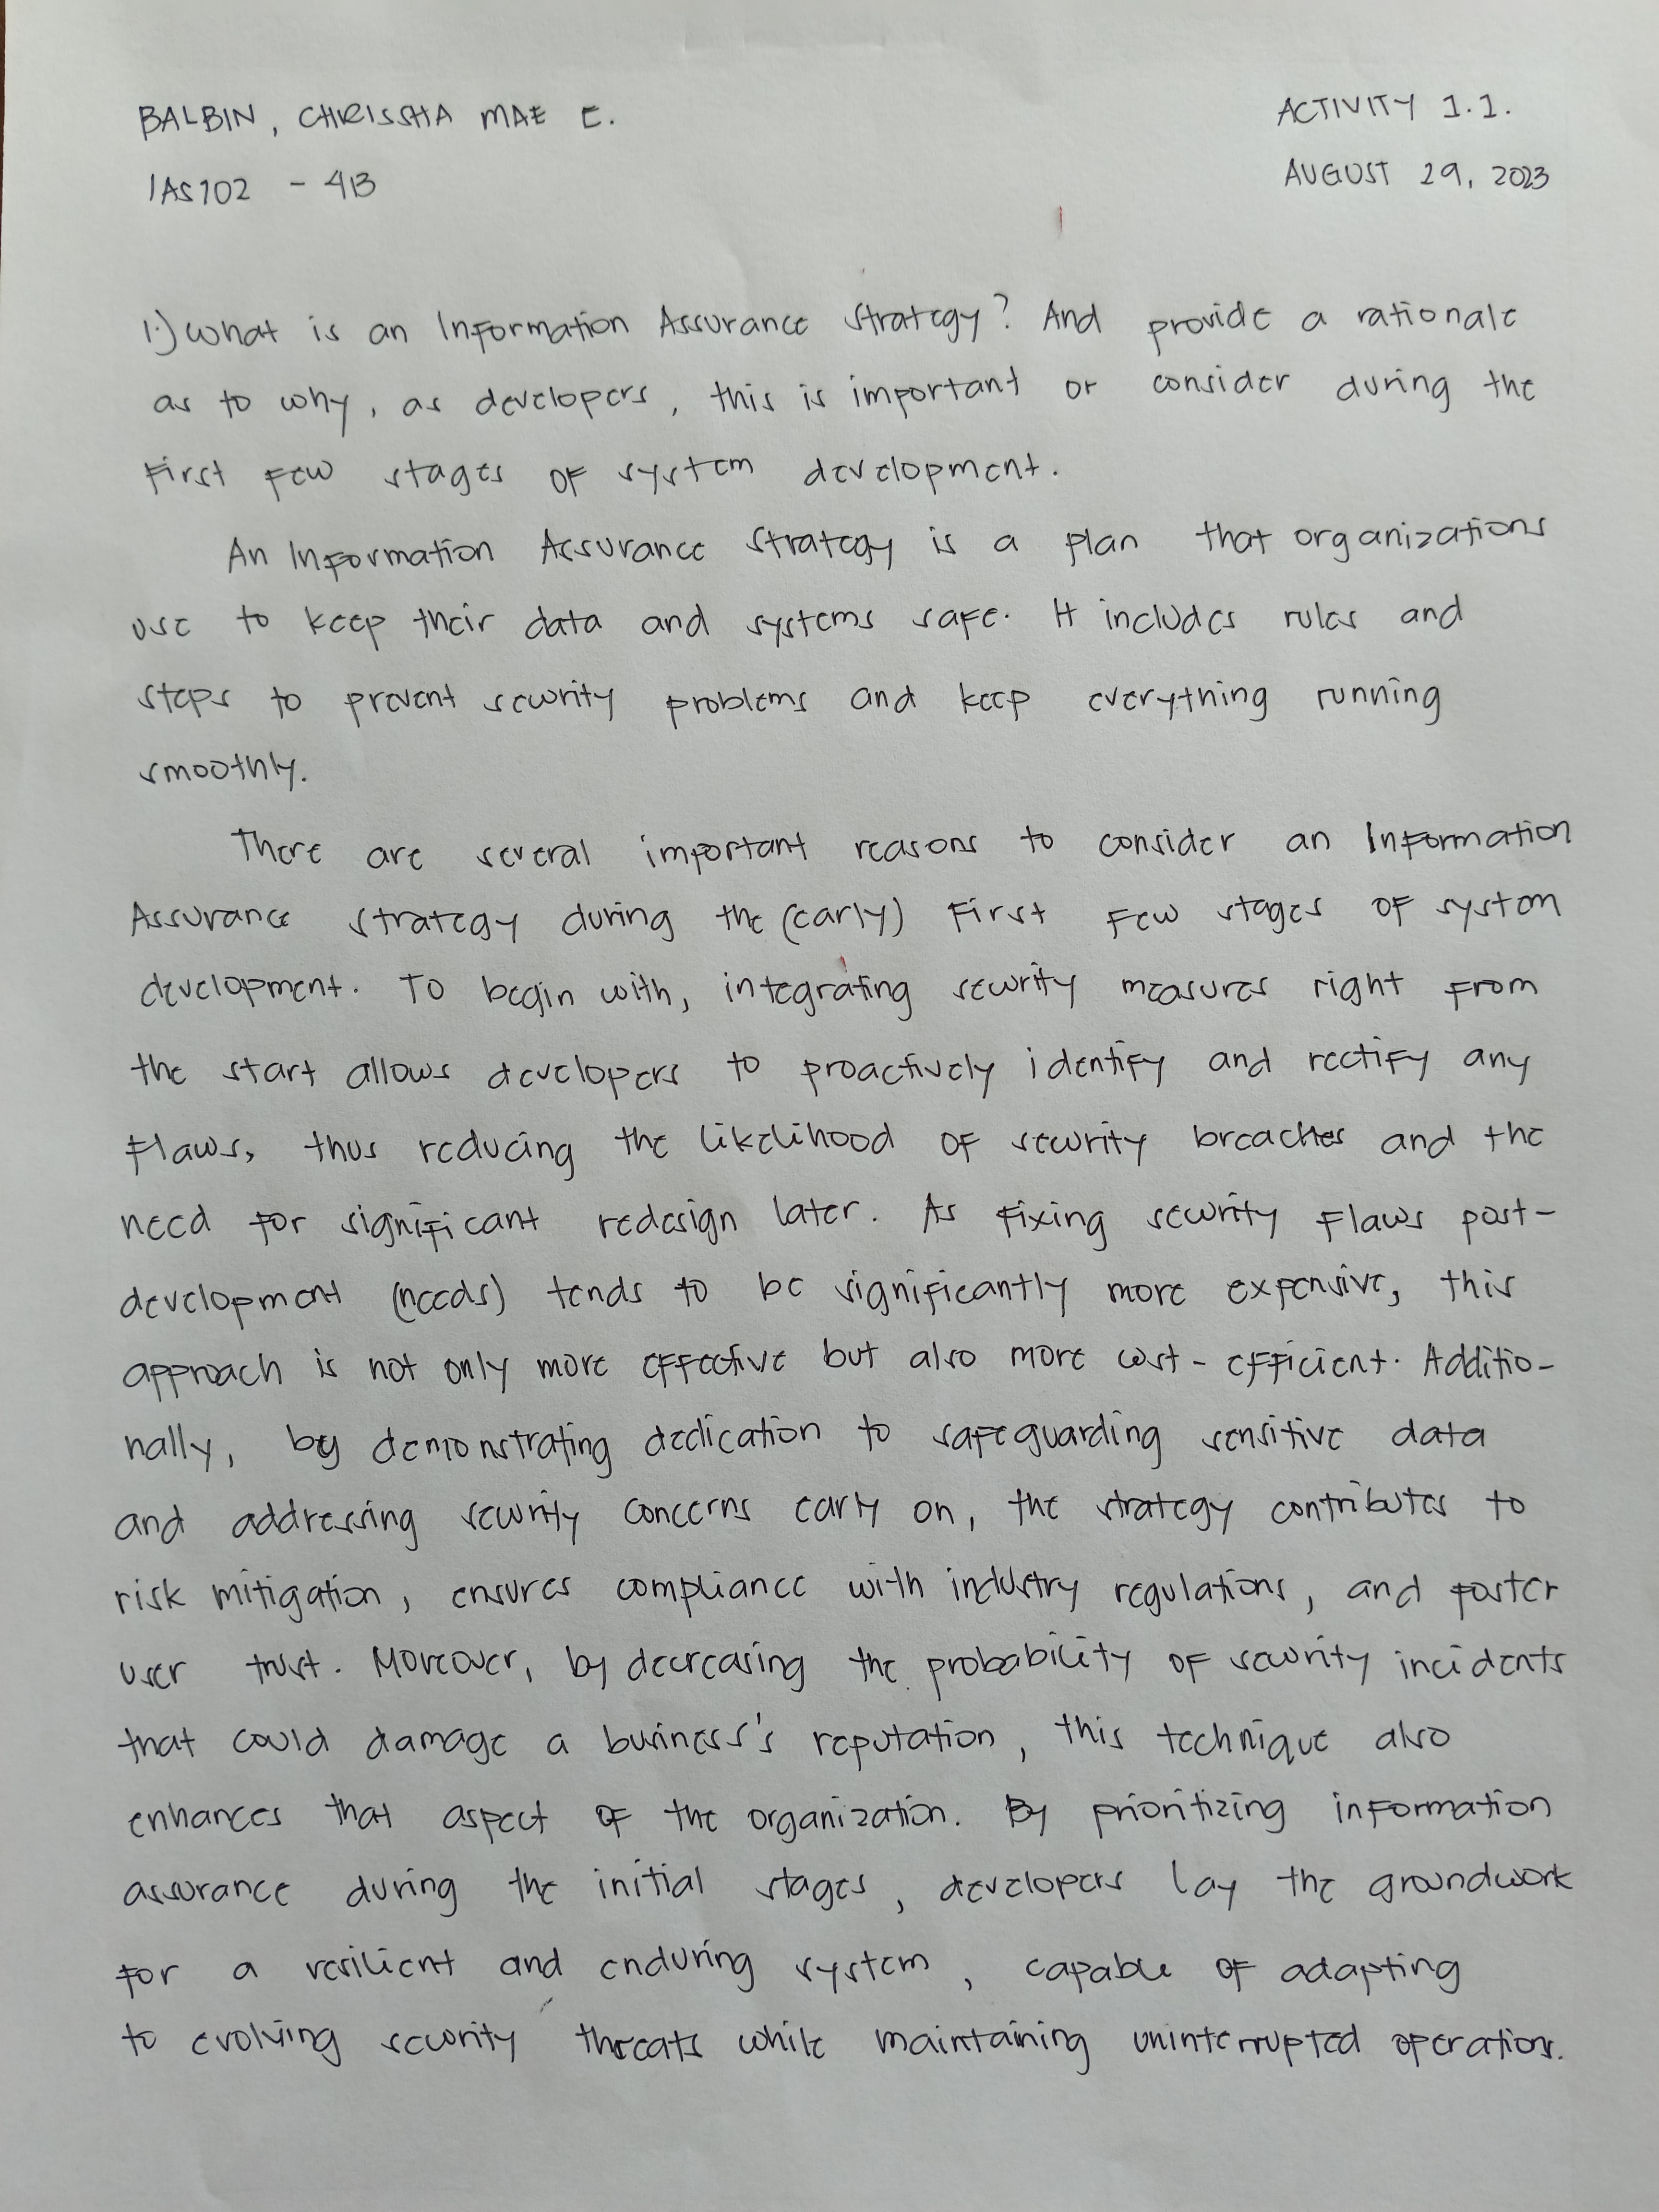 BALBIN, CHRISSHA MAE E.
ACTIVITY 1.1.
IAS102 - 4B
AUGUST 29, 2023
1.) What is an Information Assurance Strategy? And provide a rationale
as to why, as developers, this is important or consider during the
first few stages of system development.
An Information Assurance Strategy is a plan that organizations
use to keep their data and systems safe. It includes rules and
steps to prevent security problems and keep everything running
smoothly.
There are several important reasons to consider an Information
Assurance strategy during the (early) first few stages of system
development. To begin with, integrating security measures right from
the start allows developers to proactively identify and rectify any
flaws, thus reducing the likelihood of security breaches and the
need for significant redesign later. As fixing security flaws post-
development (needs) tends to be significantly more expensive, this
approach is not only more effective but also more cost-efficient. Additio-
nally, by demonstrating dedication to safeguarding sensitive data
and addressing security concerns early on, the strategy contributes to
risk mitigation, ensures compliance with industry regulations, and foster
user trust. Moreover, by decreasing the probability of security incidents
that could damage a business's reputation, this technique also
enhances that aspect of the organization. By prioritizing information
assurance during the initial stages, developers lay the groundwork
for a resilient and enduring system, capable of adapting
to evolving security threats while maintaining uninterrupted operations.